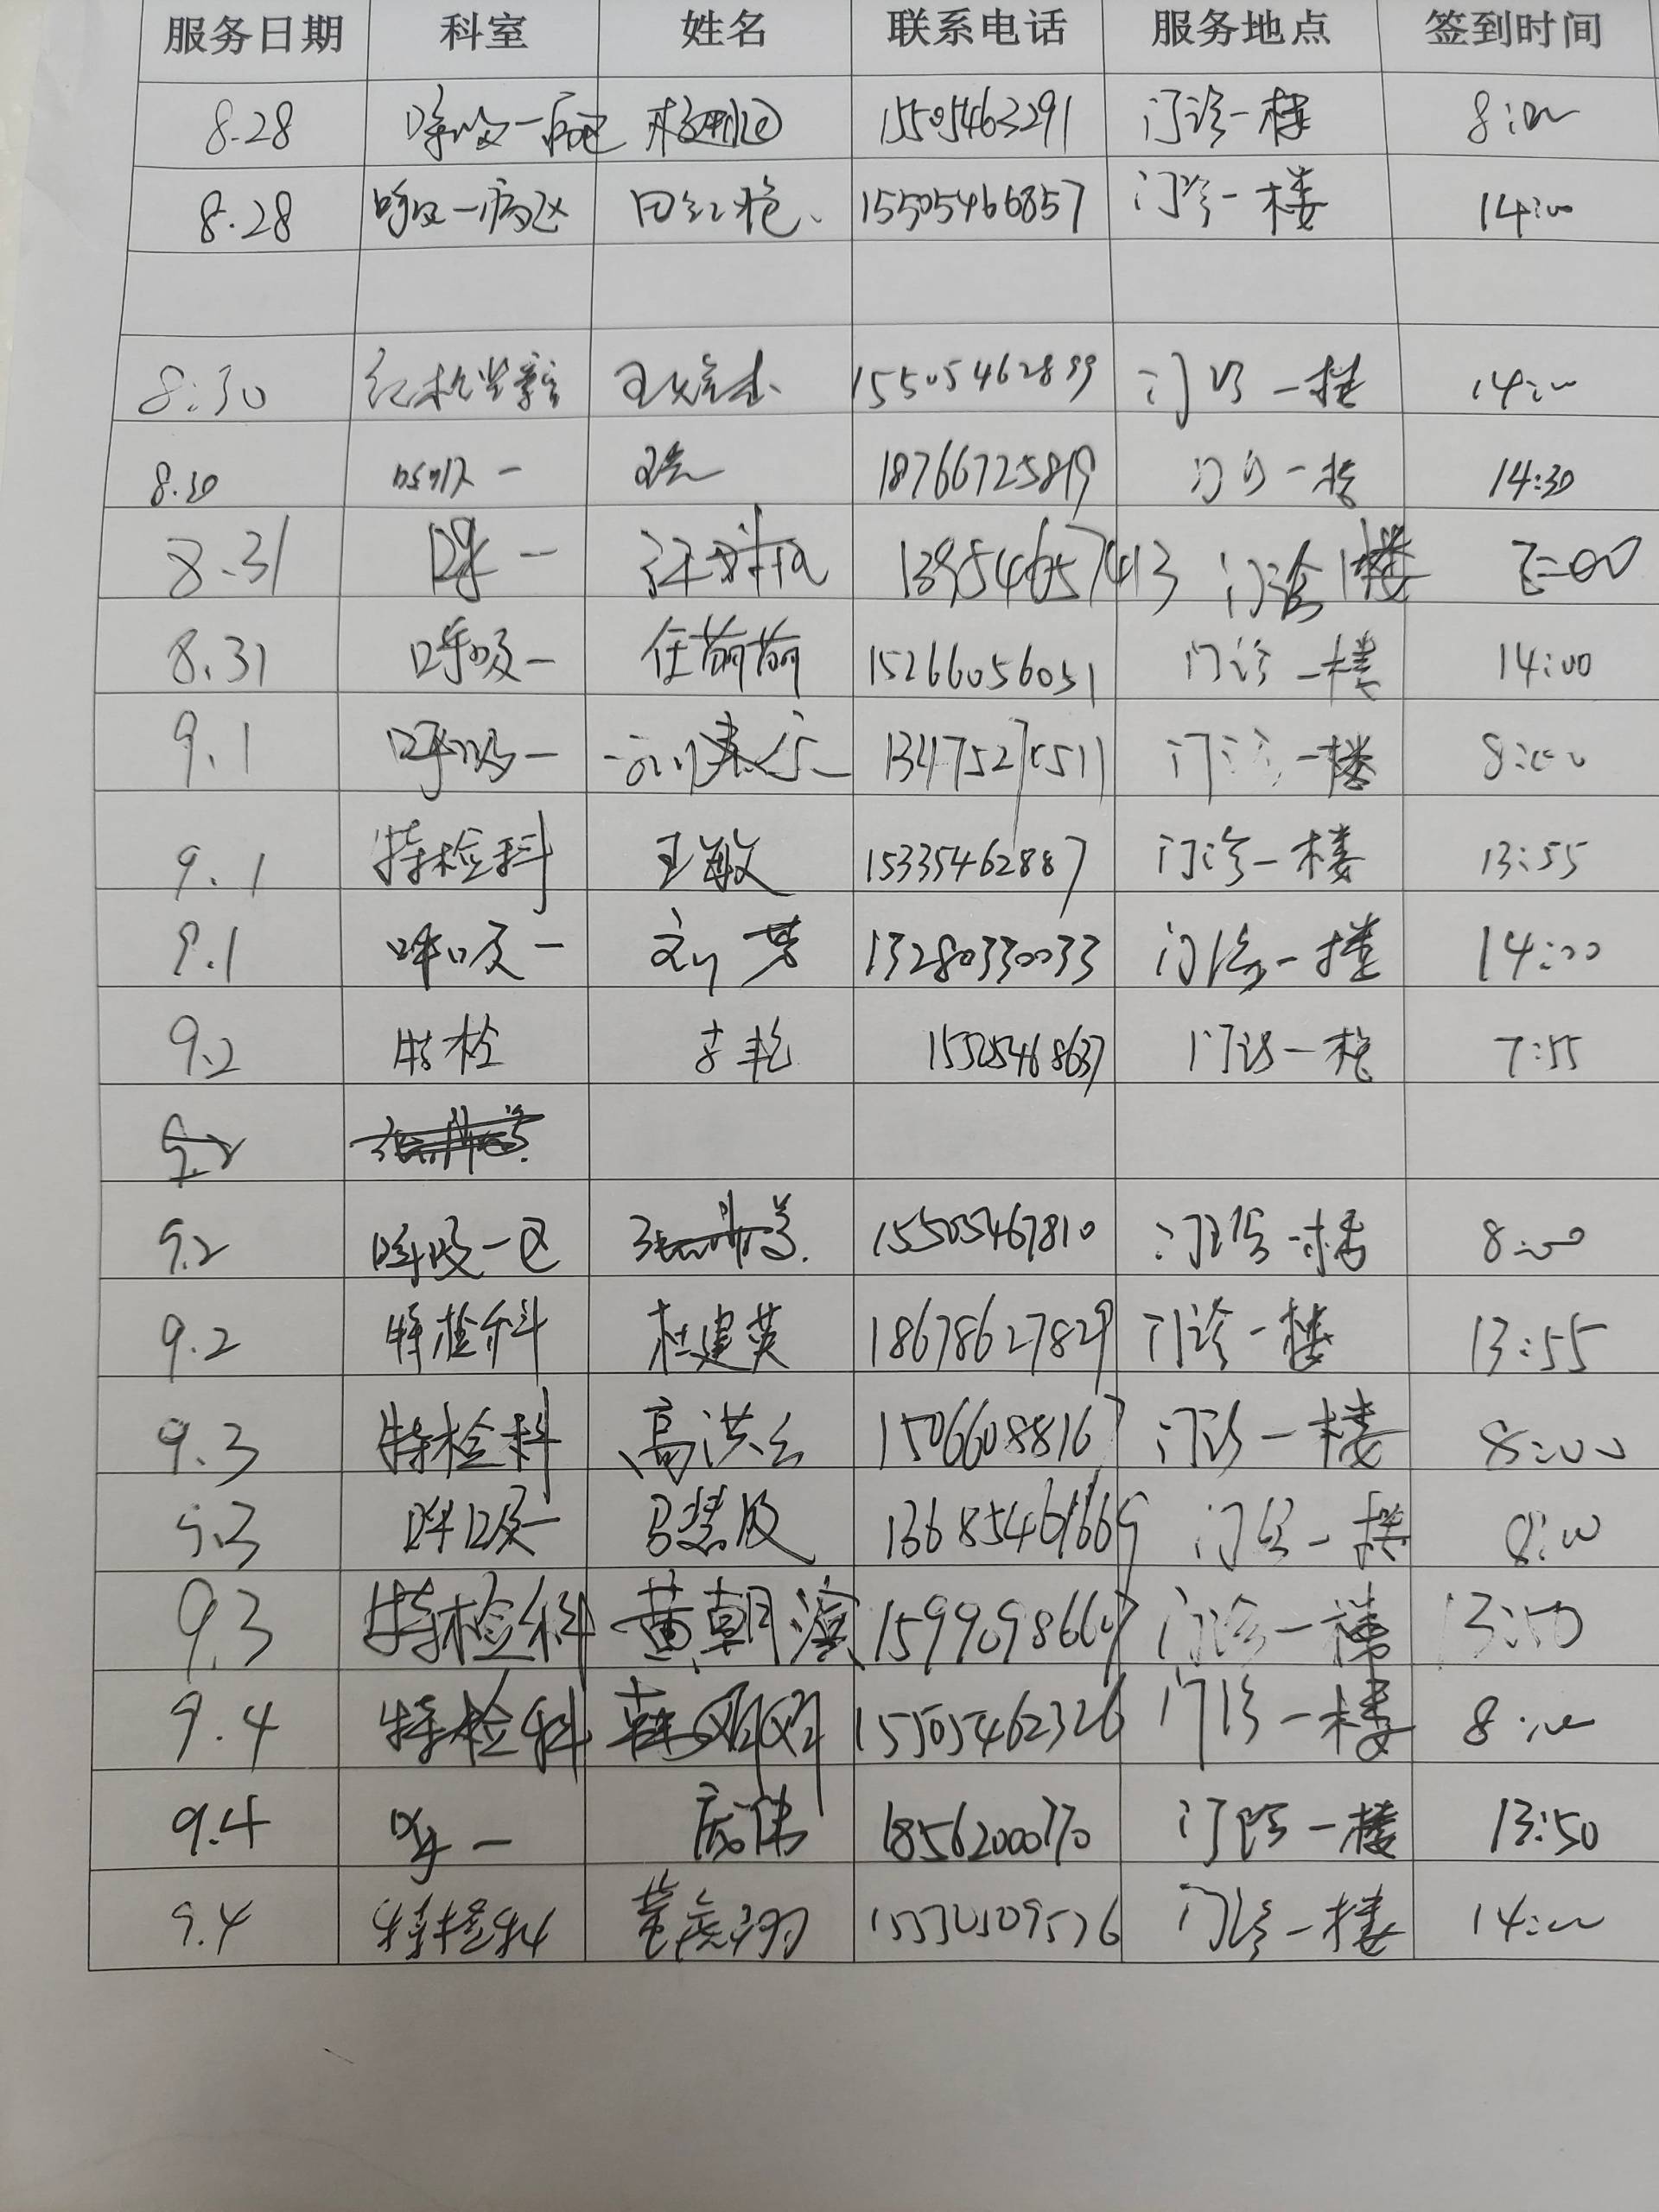 服务日期 科室 姓名 联系电话 服务地点 签到时间
8.28 呼吸一病区 15505463291 门诊一楼 8:00
8.28 呼吸一病区 田红艳 15505466857 门诊一楼 14:00
8:30 15505462899 门诊一楼 14:00
8.30 呼吸一 18766725819 门诊一楼 14:30
8.31 呼一 13954657413 门诊1楼
8.31 呼吸一 任荷荷 15266056051 门诊一楼 14:00
9.1 呼吸一 门诊一楼 8:00
9.1 特检科 王敏 15335462887 门诊一楼 13:55
9.1 呼吸一 刘芳 13280330033 门诊一楼 14:00
9.2 特检 李艳 门诊一楼 7:55
9.2
9.2 呼吸一区 15505467810 门诊一楼 8:00
9.2 特检科 杜建英 18678627829 门诊一楼 13:55
9.3 特检科 高洪云 15066088167 门诊一楼 8:00
9.3 呼吸一 门诊一楼 8:00
9.3 特检科 黄朝滨 15990986607 门诊一楼 13:50
9.4 特检科 韩双双 15505462326 门诊一楼 8:00
9.4 呼一 庞伟 18562000770 门诊一楼 13:50
9.4 特检科 门诊一楼 14:00